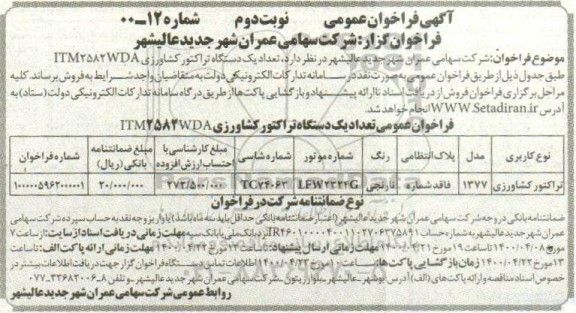 آگهی فراخوان عمومی نوبت دوم شماره ۱۲-۰۰
فراخوان گزار: شرکت سهامی عمران شهر جدید عالیشهر
موضوع فراخوان: شرکت سهامی عمران شهر جدید عالیشهر در نظر دارد، تعداد یک دستگاه تراکتور کشاورزی ITM۲۵۸۲WDA
طبق جدول ذیل از طریق فراخوان عمومی به صورت نقد در سامانه تدارکات الکترونیکی دولت به متقاضیان واجد شرایط به فروش برساند. کلیه
مراحل برگزاری فراخوان فروش از دریافت اسناد تا ارائه پیشنهاد و بازگشایی پاکت‌ها از طریق درگاه سامانه تدارکات الکترونیکی دولت (ستاد) به
آدرس WWW.Setadiran.ir انجام خواهد شد.
فراخوان عمومی تعداد یک دستگاه تراکتور کشاورزی ITM۲۵۸۲WDA
نوع کاربری مدل پلاک انتظامی رنگ شماره موتور شماره شاسی مبلغ کارشناسی با احتساب ارزش افزوده مبلغ ضمانتنامه بانکی (ریال) شماره فراخوان
تراکتور کشاورزی ۱۳۷۷ فاقد شماره نارنجی LFW۲۳۲۴G TC۷۴۰۶۳ ۲۷۳/۵۰۰/۰۰۰ ۲۰/۰۰۰/۰۰۰ ۱۰۰۰۰۰۵۹۶۲۰۰۰۰۰۱
نوع ضمانتنامه شرکت در فراخوان
ضمانتنامه بانکی در وجه شرکت سهامی عمران شهر جدید عالیشهر (اعتبار ضمانتنامه بانکی حداقل باید سه ماه باشد) یا واریز وجه نقد به حساب سپرده شرکت سهامی
عمران شهر جدید عالیشهر به شماره حساب نزد بانک ملی یا بانک سپه مهلت زمانی دریافت اسناد از سایت: از ساعت ۷
مورخ ۱۴۰۰/۰۴/۰۸ تا ساعت ۱۹ مورخ مهلت زمانی ارسال پیشنهاد: مهلت زمانی ارائه پاکت الف: تا ساعت
۱۳ مورخ ۱۴۰۰/۰۴/۲۲ زمان بازگشایی پاکت‌ها: ساعت مورخ ۱۴۰۰/۰۴/۲۳ اطلاعات تماس دستگاه فراخوان گزار جهت دریافت اطلاعات بیشتر در
خصوص اسناد مناقصه و ارائه پاکت‌های (الف) آدرس: بوشهر - عالیشهر - بلوار زیتون - شرکت سهامی عمران شهر جدید عالیشهر - تلفن ۸-۳۳۶۸۳۰۰۶-۰۷۷
روابط عمومی شرکت سهامی عمران شهر جدید عالیشهر